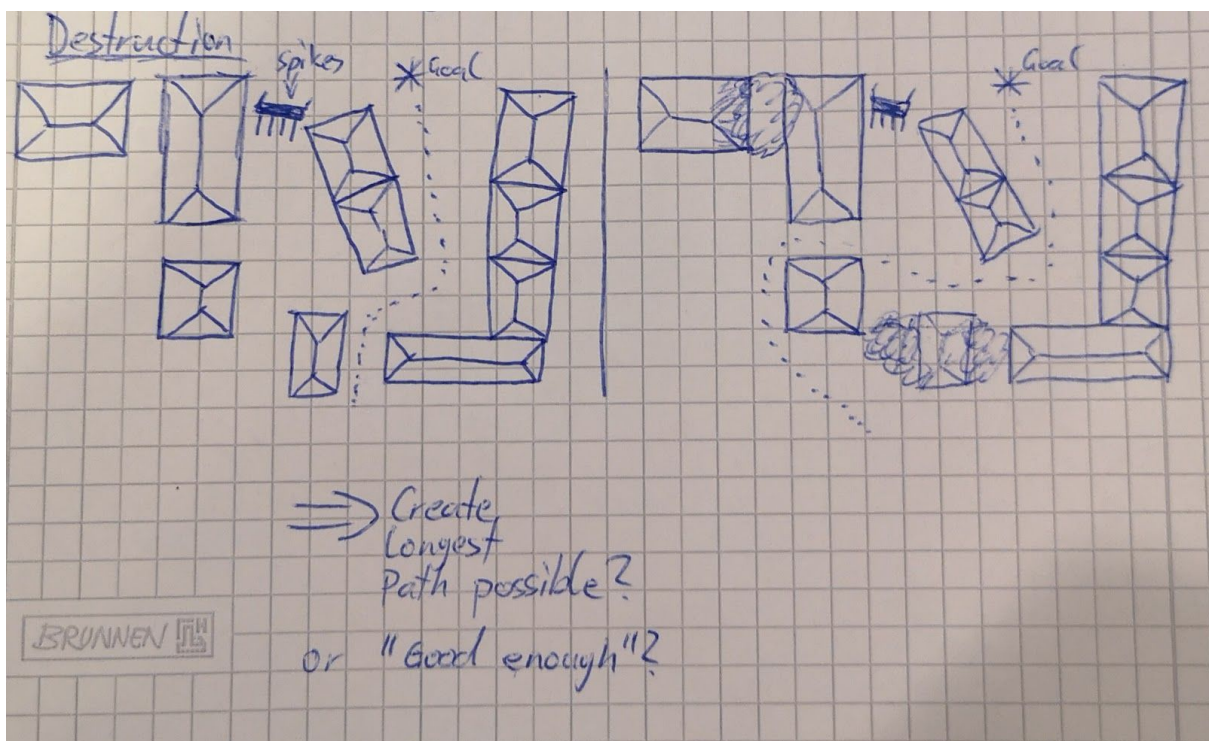 Destruction
spikes
Goal
Goal
Create
Longest
Path possible?
or "Good enough"?
BRUNNEN